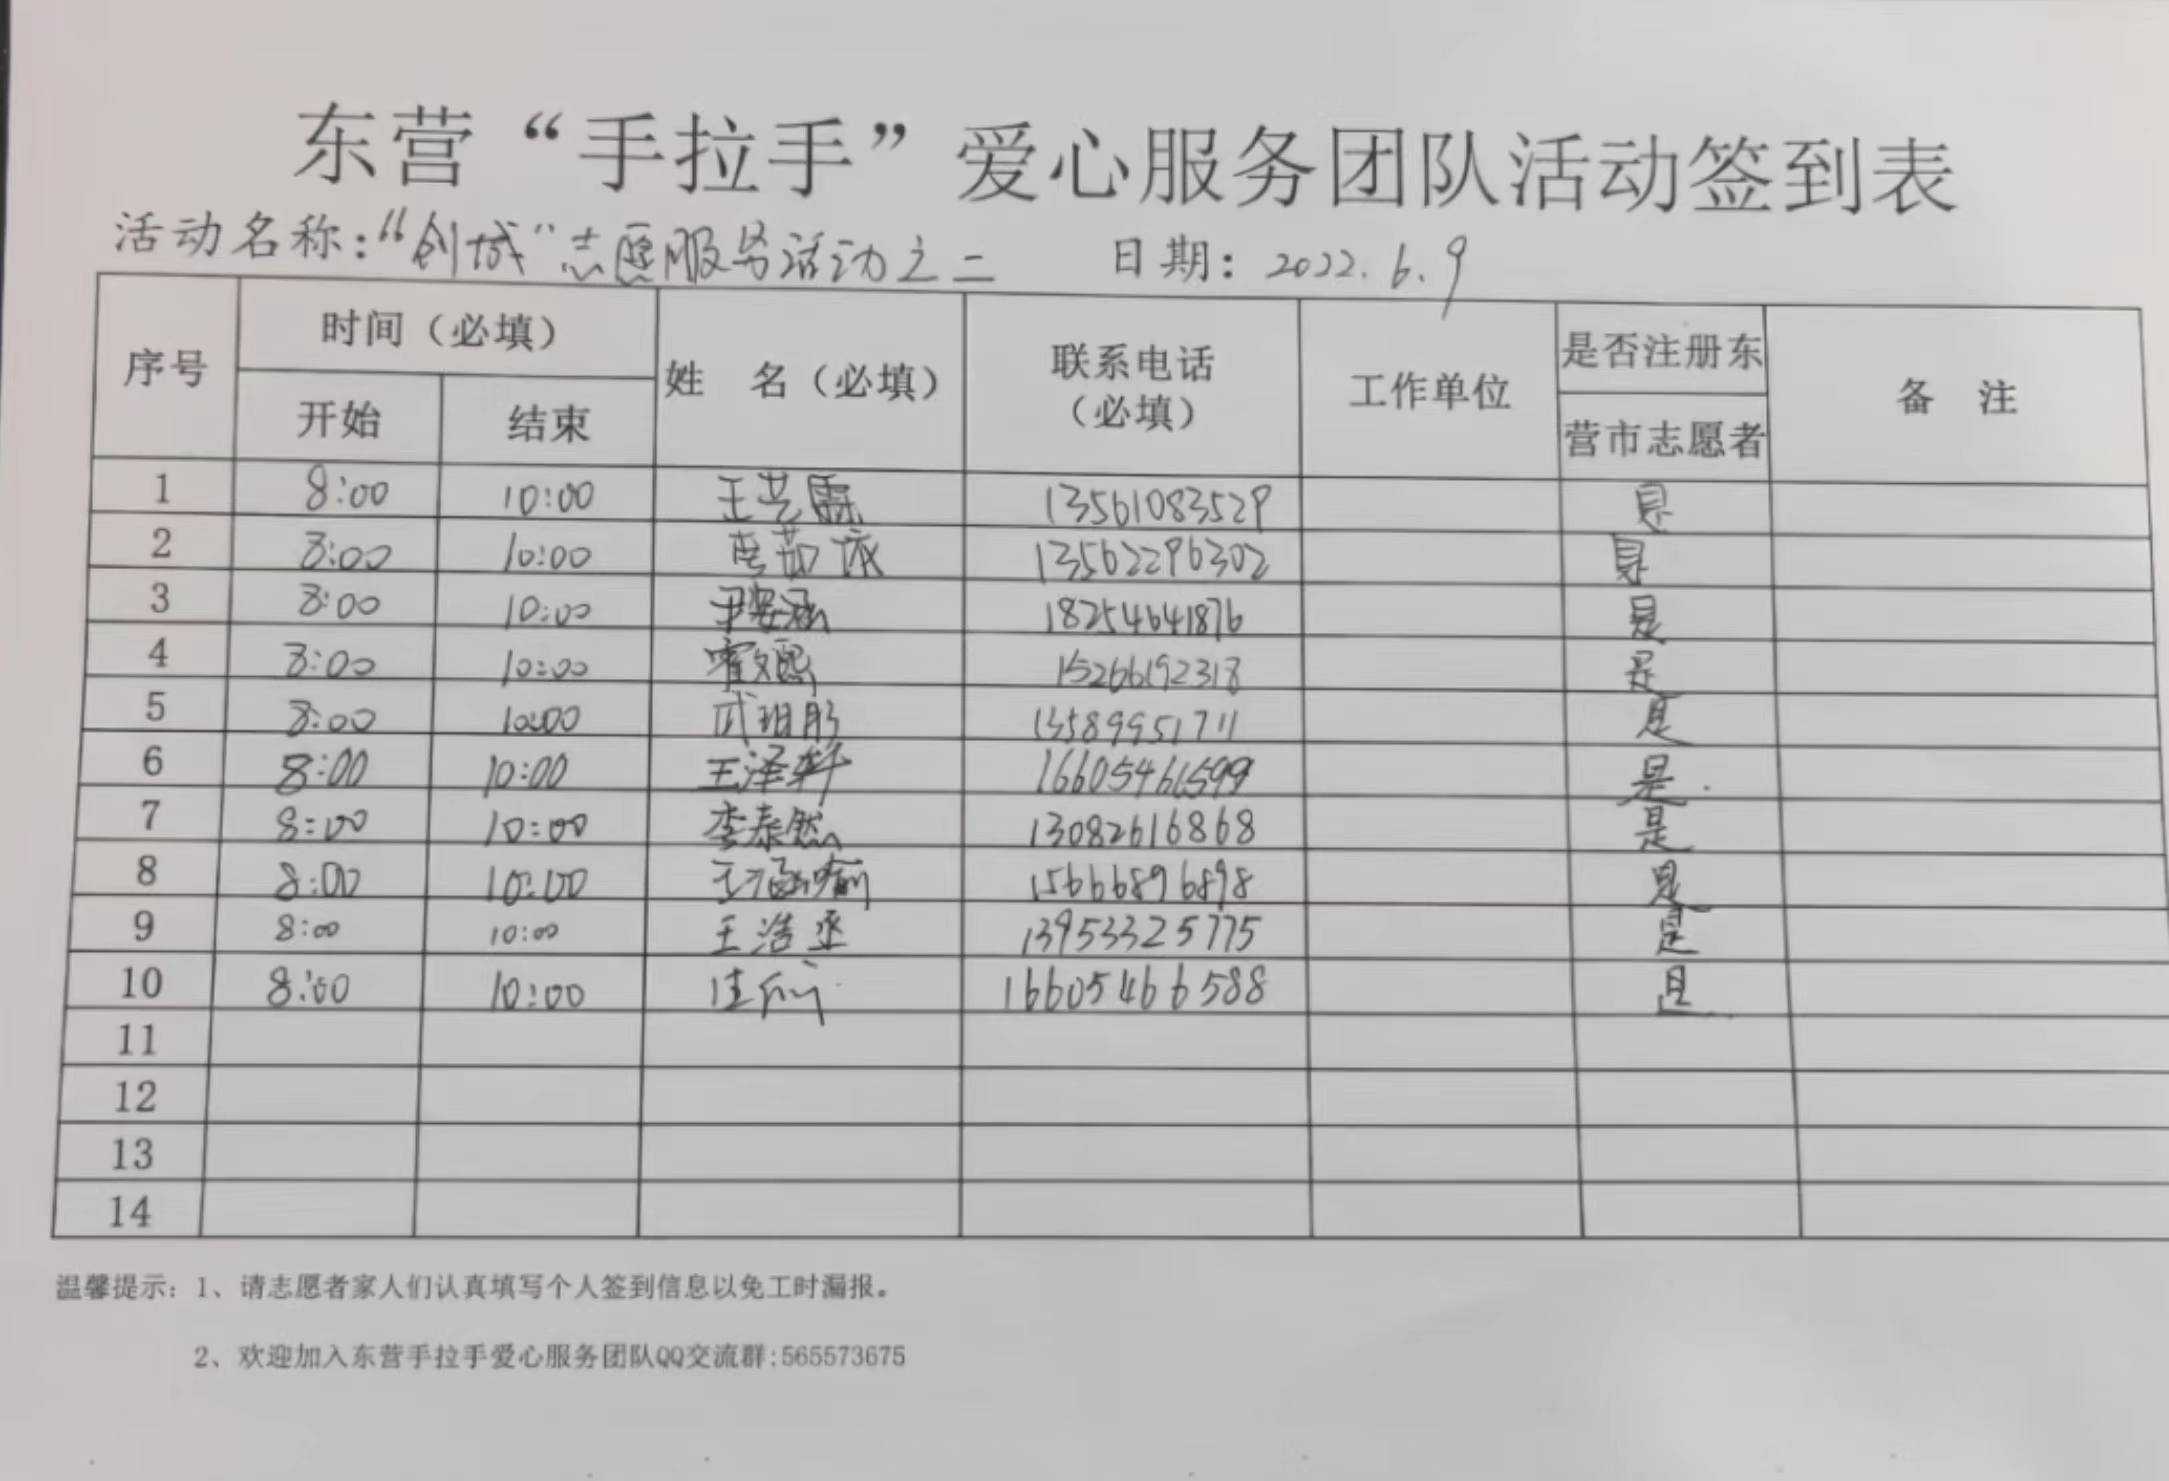 东营“手拉手”爱心服务团队活动签到表
活动名称：“创城”志愿服务活动之二 日期：2022.6.9
序号 时间（必填） 姓 名（必填） 联系电话（必填） 工作单位 是否注册东营市志愿者 备 注
开始 结束
1 8:00 10:00 王艺霖 13561083529 是
2 8:00 10:00 13562296302 是
3 8:00 10:00 尹安涵 18254641876 是
4 8:00 10:00 霍文熙 15266192318 是
5 8:00 10:00 武玥彤 13589951711 是
6 8:00 10:00 王泽轩 16605461599 是
7 8:00 10:00 李泰然 13082616868 是
8 8:00 10:00 15666896898 是
9 8:00 10:00 王浩丞 13953325775 是
10 8:00 10:00 16605466588 是
11
12
13
14
温馨提示：1、请志愿者家人们认真填写个人签到信息以免工时漏报。
2、欢迎加入东营手拉手爱心服务团队QQ交流群:565573675